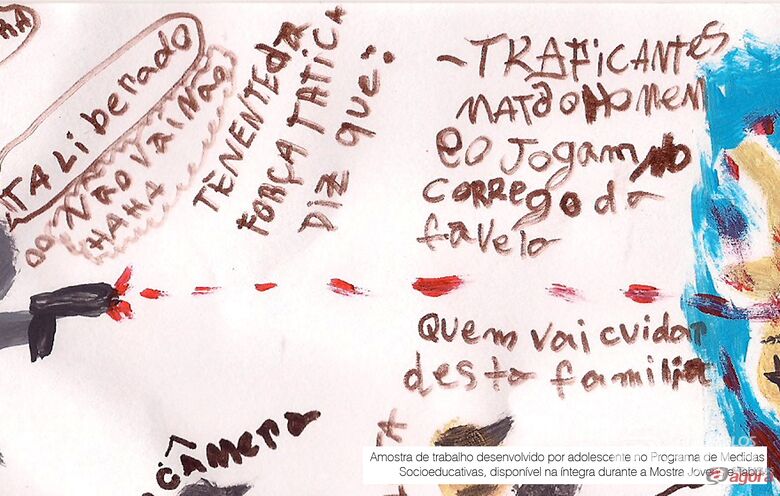 TA Liberado
NÃO VAI NÃO
HAHA
TENENTE DA
FORÇA TATICA
DIZ que:
- TRAFICANTES
MATA O HOMEM
E O JOGAM NO
CORREGO da
favela
Quem vai cuidar
desta familia
CÂMERA
Amostra de trabalho desenvolvido por adolescente no Programa de Medidas
Socioeducativas, disponível na íntegra durante a Mostra
agora